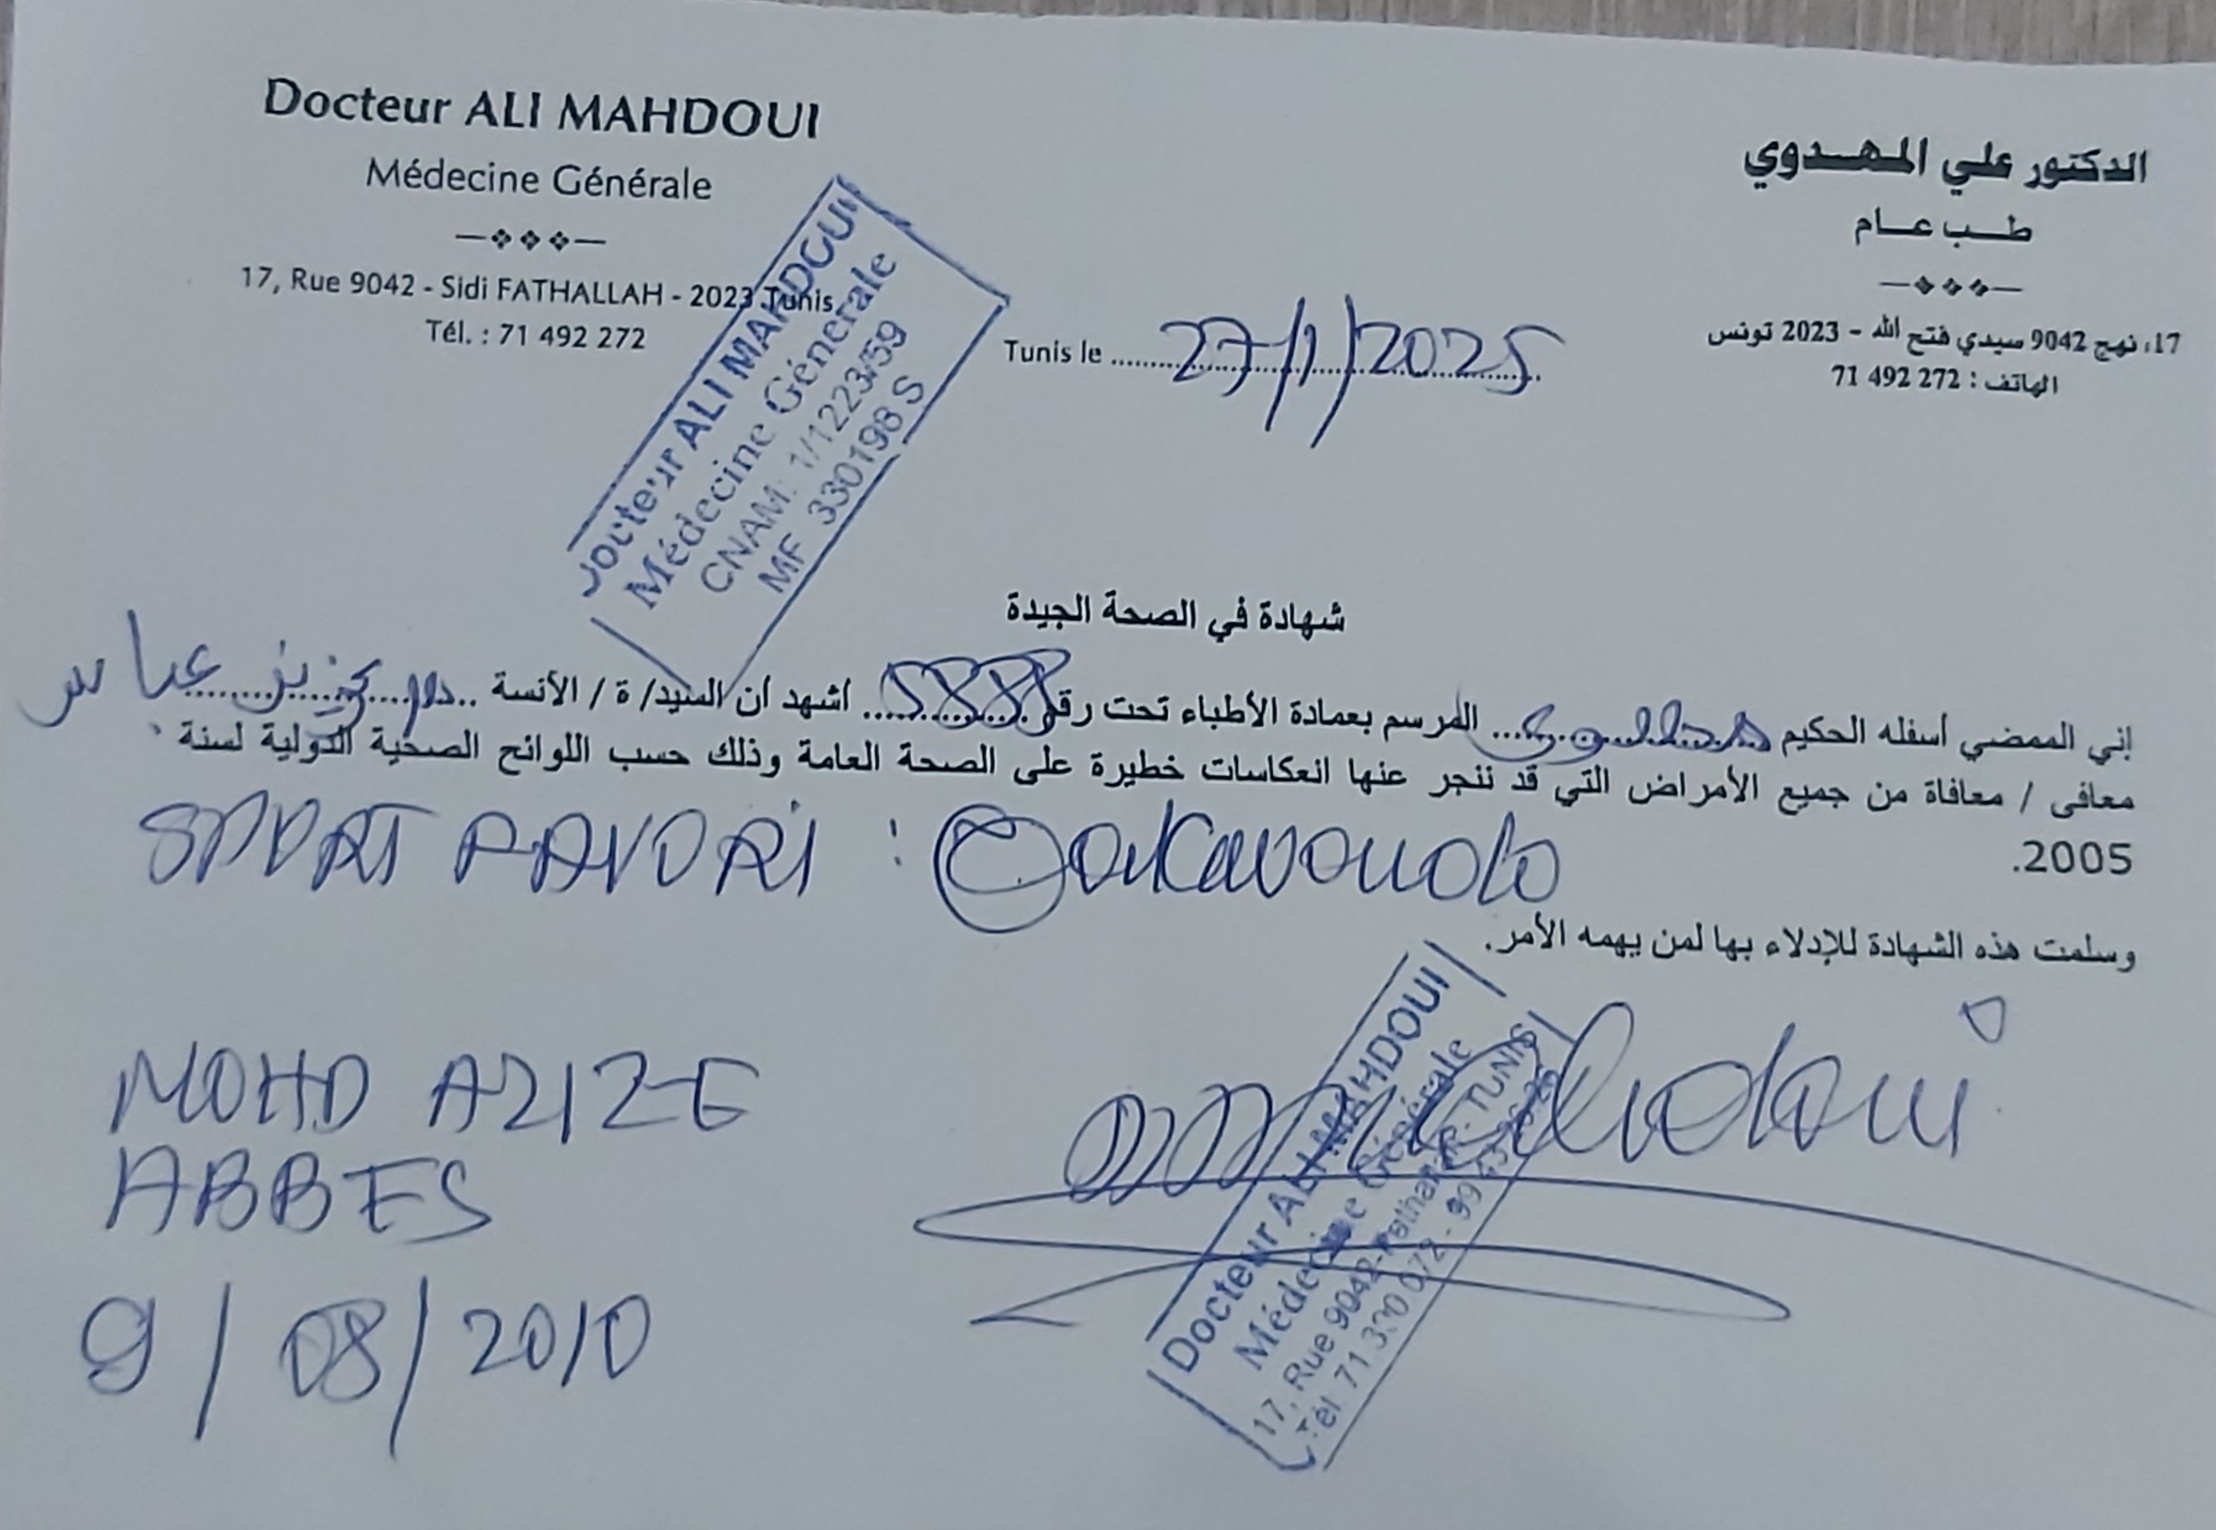 Docteur ALI MAHDOUI
Médecine Générale
17, Rue 9042 - Sidi FATHALLAH - 2023 Tunis
Tél. : 71 492 272
الدكتور علي المهدوي
طب عام
17، نهج 9042 سيدي فتح الله - 2023 تونس
الهاتف : 272 492 71
Docteur ALI MAHDOUI
Médecine Générale
CNAM: 1/1223/59
MF 330198 S
Tunis le 27/1/2025
شهادة في الصحة الجيدة
إني الممضي أسفله الحكيم المرسم بعمادة الأطباء تحت رقم 5888 أشهد أن السيد/ ة / الأنسة عزيز عباس
معافى / معافاة من جميع الأمراض التي قد تنجر عنها انعكاسات خطيرة على الصحة العامة وذلك حسب اللوائح الصحية الدولية لسنة
2005.
SPORT FAVORI :
وسلمت هذه الشهادة للإدلاء بها لمن يهمه الأمر.
MOHD AZIZE
ABBES
9/08/2010
Docteur ALI MAHDOUI
Médecine Générale
17, Rue 9042- Fathallah - TUNIS
Tél 71